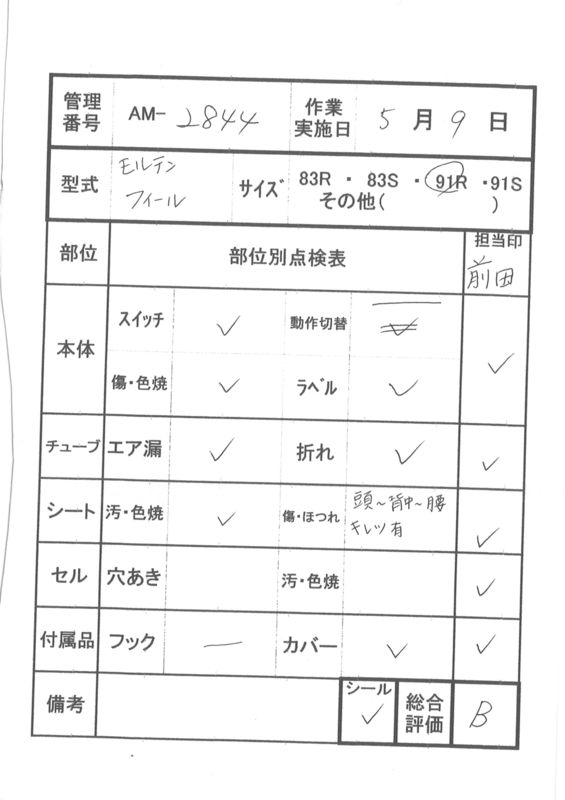 管理番号 AM- 2844 作業実施日 5月9日
型式 モルテン フィール サイズ 83R ・ 83S ・ 91R ・91S
その他( )
部位 部位別点検表 担当印 前田
本体 スイッチ ✓ 動作切替 ✓ ✓
傷・色焼 ✓ ラベル ✓
チューブ エア漏 ✓ 折れ ✓ ✓
シート 汚・色焼 ✓ 傷・ほつれ 頭~背中~腰 キレツ有 ✓
セル 穴あき 汚・色焼 ✓
付属品 フック — カバー ✓ ✓
備考 シール ✓ 総合評価 B